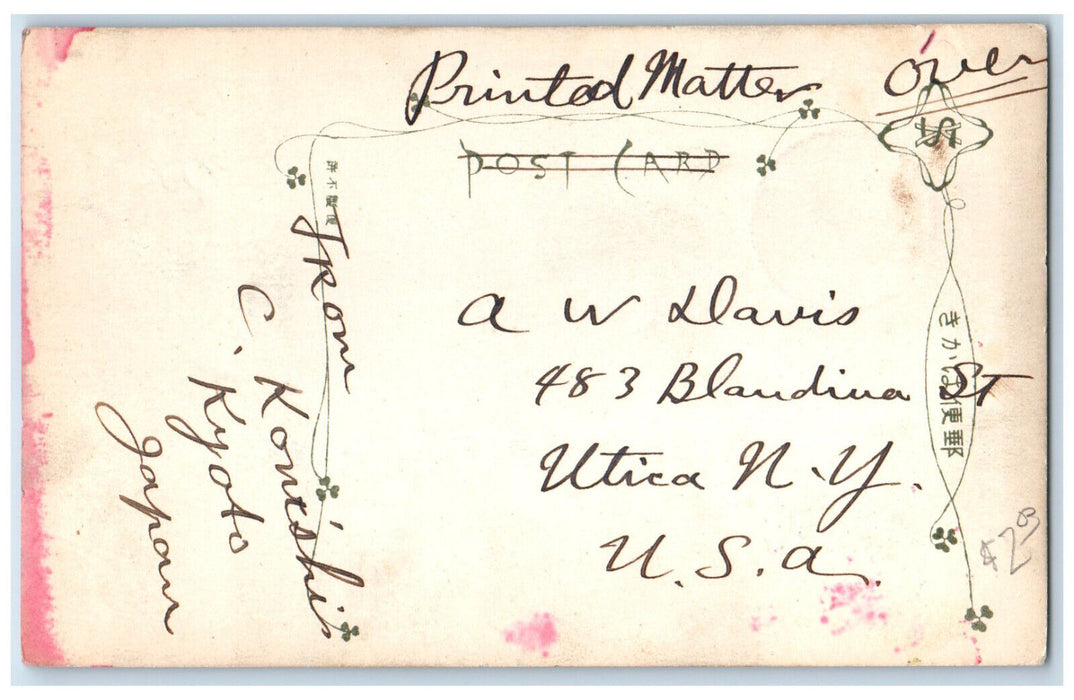 Printed Matter
Over
POST CARD
許不製複
From
C. Konishi
Kyoto
Japan
A W Davis
483 Blandina ST
Utica N.Y.
U.S.A.
きかは便郵